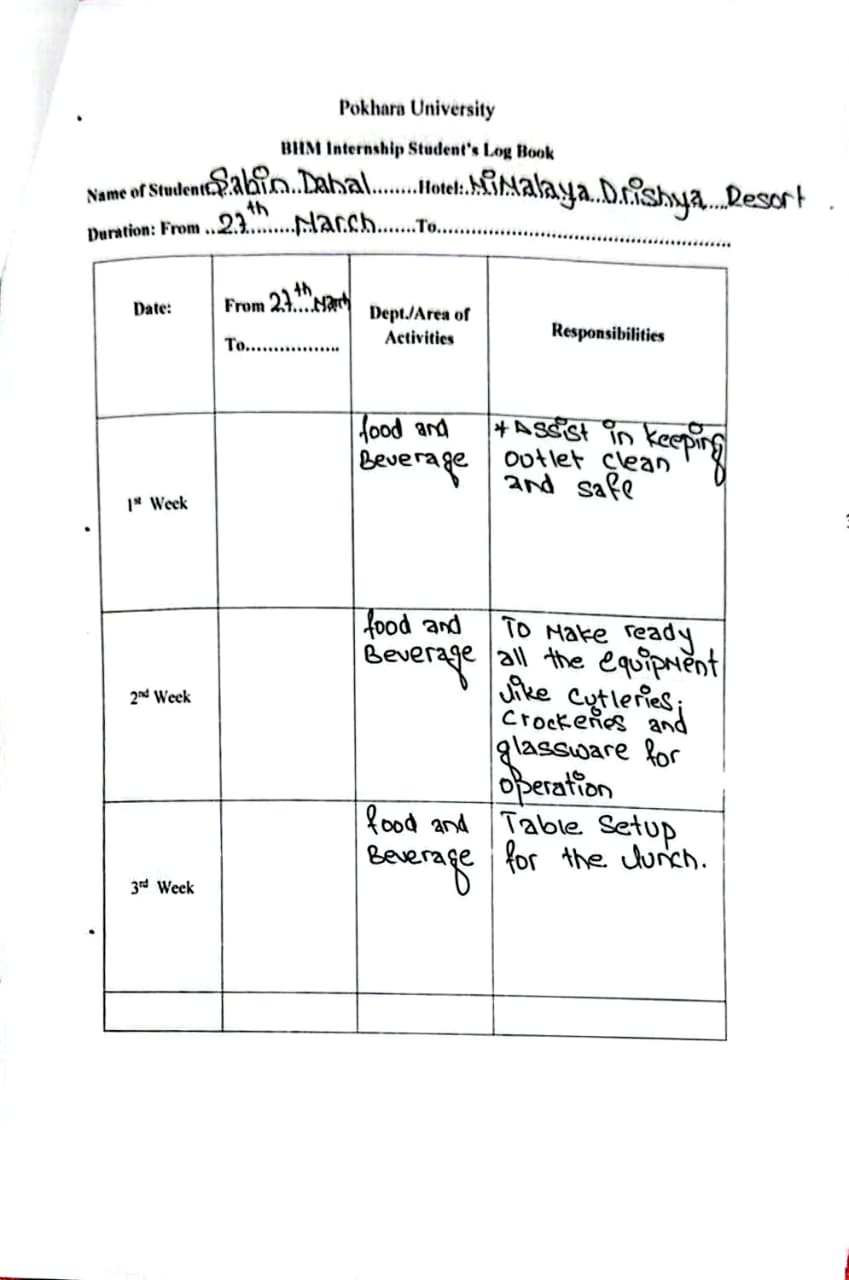 Pokhara University
BHM Internship Student's Log Book
Name of Student: Sabin Dahal........Hotel:.Himalaya..Drishya....Resort
Duration: From ..27th........March.......To............................................................
Date:
From 27th...March
To.................
Dept./Area of
Activities
Responsibilities
1st Week
food and
Beverage
* Assist in keeping
outlet clean
and safe
2nd Week
food and
Beverage
To Make ready
all the equipment
like Cutleries,
Crockeries and
glassware for
operation
3rd Week
food and
Beverage
Table Setup
for the lunch.